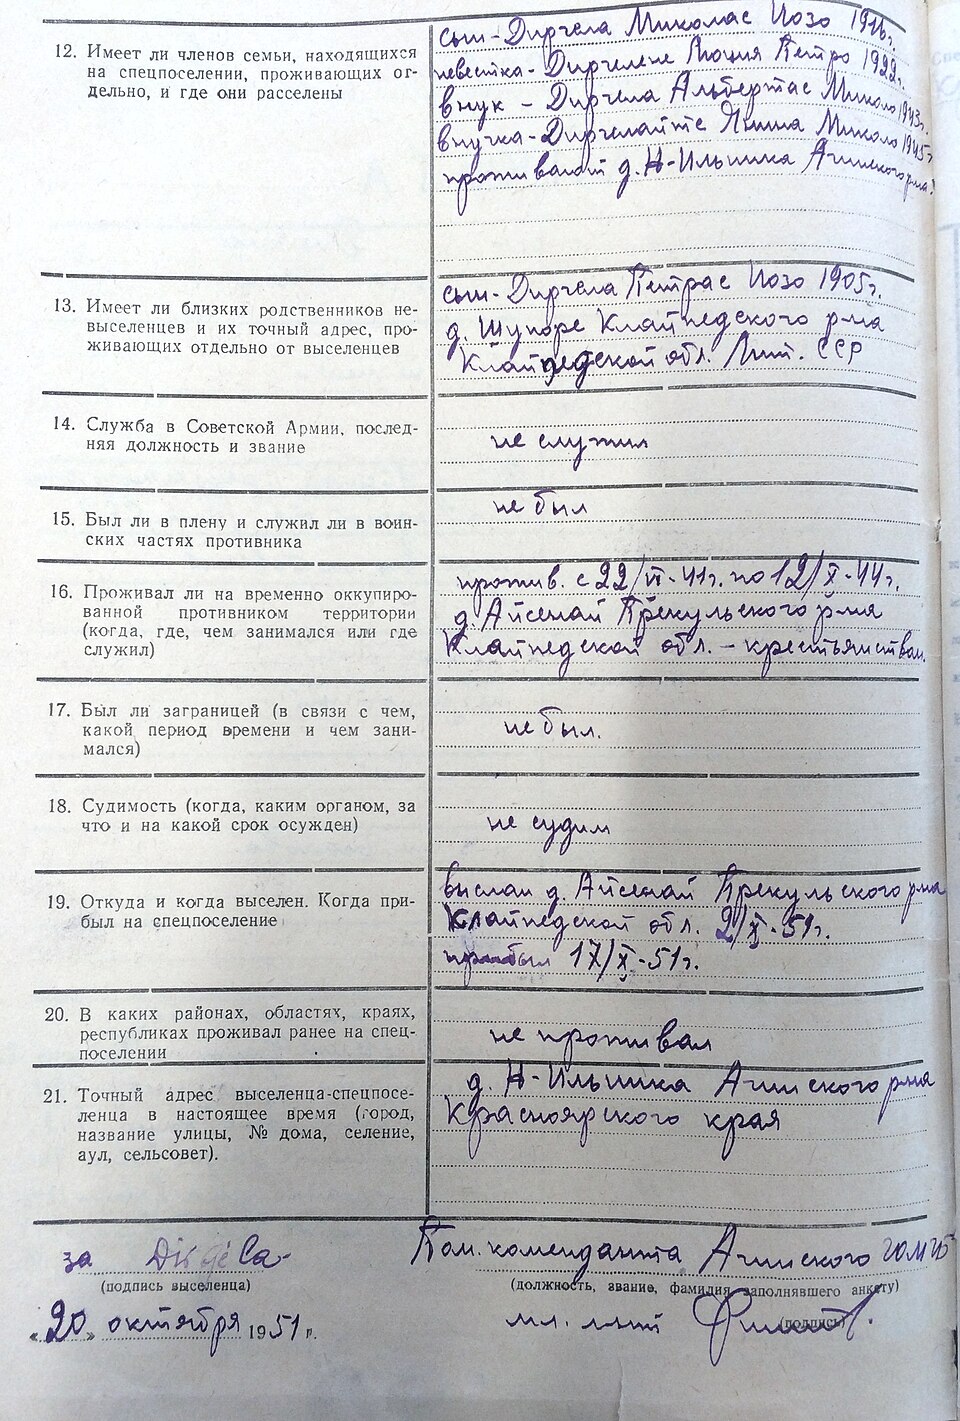 12. Имеет ли членов семьи, находящихся
на спецпоселении, проживающих от-
дельно, и где они расселены
сын - Диргела Миколас Иозо 1916г.
невестка - Диргелене Люция Петро 1922г.
внук - Диргела Альбертас Миколо 1943г.
внучка - Диргелайте Янина Миколо 1945г.
проживают д. Н-Ильинка Ачинского р-на
13. Имеет ли близких родственников не-
выселенцев и их точный адрес, про-
живающих отдельно от выселенцев
сын - Диргела Петрас Иозо 1905г.
д. Шупоре Клайпедского р-на
Клайпедской обл. Лит. ССР
14. Служба в Советской Армии, послед-
няя должность и звание
не служил
15. Был ли в плену и служил ли в воин-
ских частях противника
не был
16. Проживал ли на временно оккупиро-
ванной противником территории
(когда, где, чем занимался или где
служил)
прожив. с 22/VI-41г. по 12/X-44г.
д. Айсенай Прекульского р-на
Клайпедской обл. - крестьянствов.
17. Был ли заграницей (в связи с чем,
какой период времени и чем зани-
мался)
не был.
18. Судимость (когда, каким органом, за
что и на какой срок осужден)
не судим
19. Откуда и когда выселен. Когда при-
был на спецпоселение
выслан д. Айсенай Прекульского р-на
Клайпедской обл. 2/X-51г.
прибыл 17/X-51г.
20. В каких районах, областях, краях,
республиках проживал ранее на спец-
поселении
не проживал
21. Точный адрес выселенца-спецпосе-
ленца в настоящее время (город,
название улицы, № дома, селение,
аул, сельсовет).
д. Н-Ильинка Ачинского р-на
Красноярского края
за Dirgėla
(подпись выселенца)
"20" октября 1951 г.
Пом. коменданта Ачинского
(должность, звание, фамилия заполнявшего анкету)
мл. л-нт
(подпись)